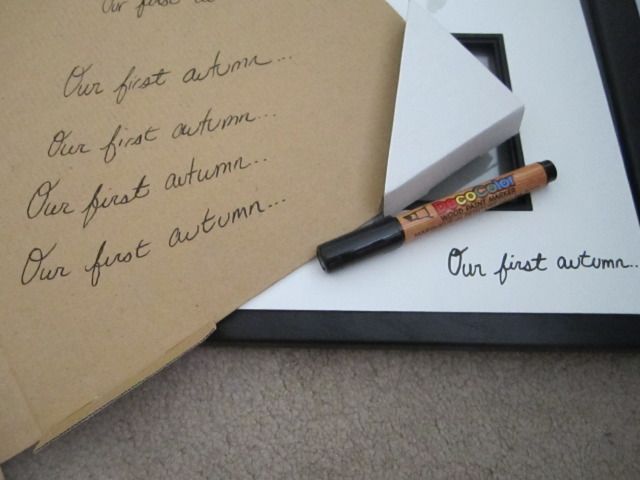 Our first
Our first autumn...
Our first autumn...
Our first autumn...
Our first autumn...
DecoColor
WOOD PAINT MARKER
Our first autumn..